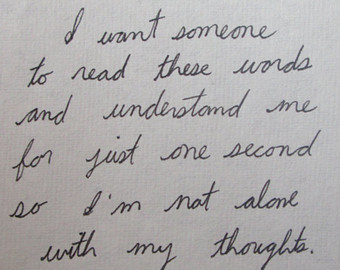 I want someone
to read these words
and understand me
for just one second
so I'm not alone
with my thoughts.